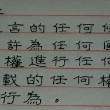 言的任何何
許為任何個
權進行任何
載的任何權
行為。